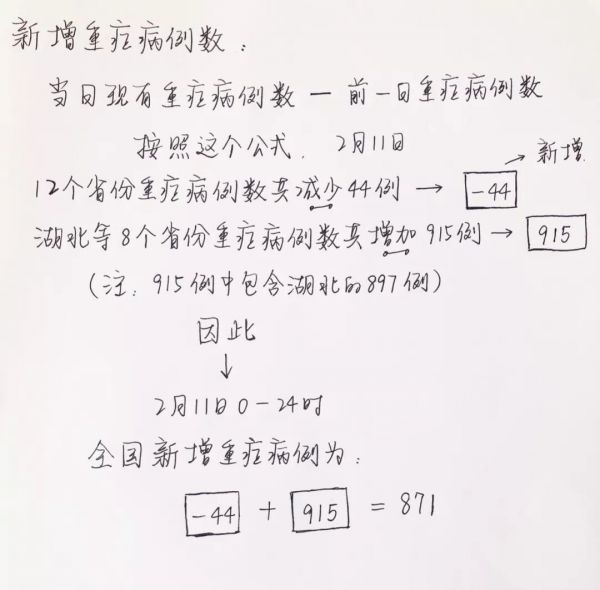 新增重症病例数：
当日现有重症病例数 — 前一日重症病例数
按照这个公式，2月11日
→ 新增
12个省份重症病例数共减少44例 → -44
湖北等8个省份重症病例数共增加915例 → 915
（注：915例中包含湖北的897例）
因此
↓
2月11日0-24时
全国新增重症病例为：
-44 + 915 = 871